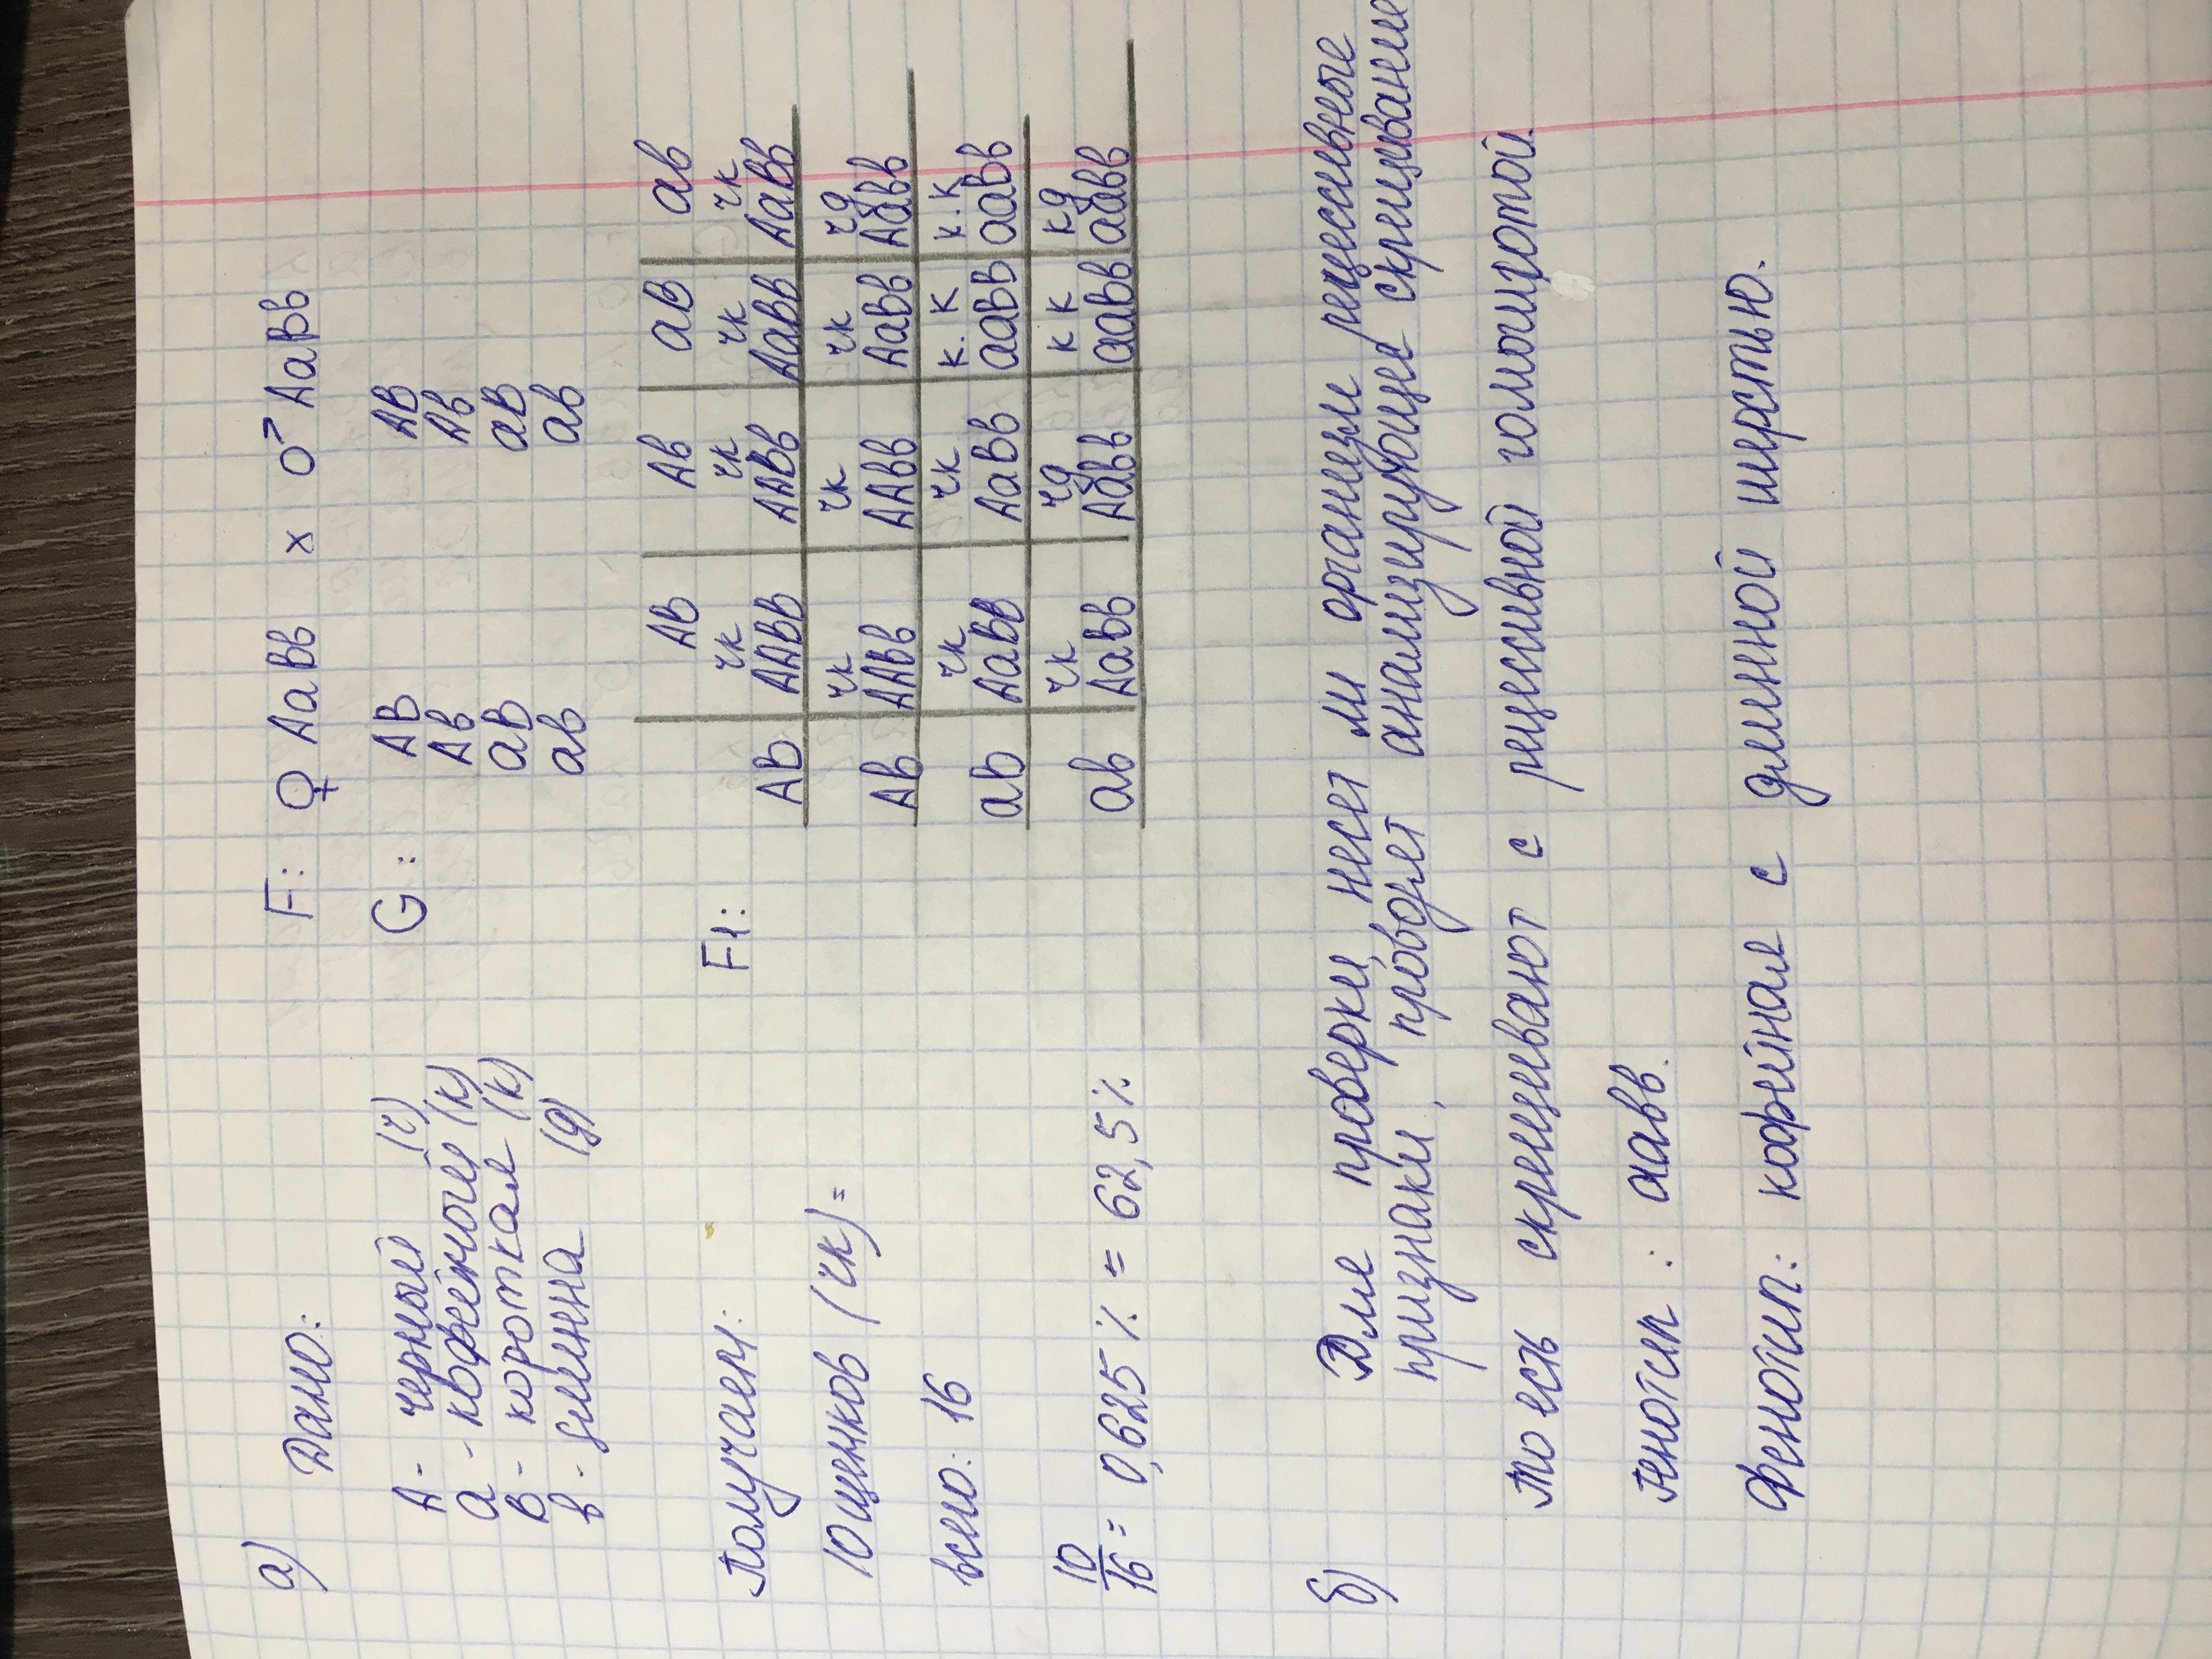 а) Дано:
А - черный (ч)
а - кофейного (к)
В - короткая (к)
в - длинна (д)
F: ♀ АаВв х ♂ АаВв
G: АВ АВ
Ав Ав
аВ аВ
ав ав
F1:
АВ Ав аВ ав
чк чк чк чк
АВ ААВВ ААВв АаВВ АаВв
чк чк чк чд
Ав ААВв ААВв АаВв Аавв
чк чк к.к к.к
ав АаВВ АаВв ааВВ ааВв
чк чд кк кд
ав АаВв Аавв ааВв аавв
Получаем:
10 щенков (чк) =
всего: 16
10/16 = 0,625% = 62,5%
б) Для проверки, несет ли организм рецессивные
признаки, проводят анализирующее скрещивание
То есть скрещивают с рецессивной гомозиготой.
Генотип: аавв.
Фенотип: кофейная с длинной шерстью.